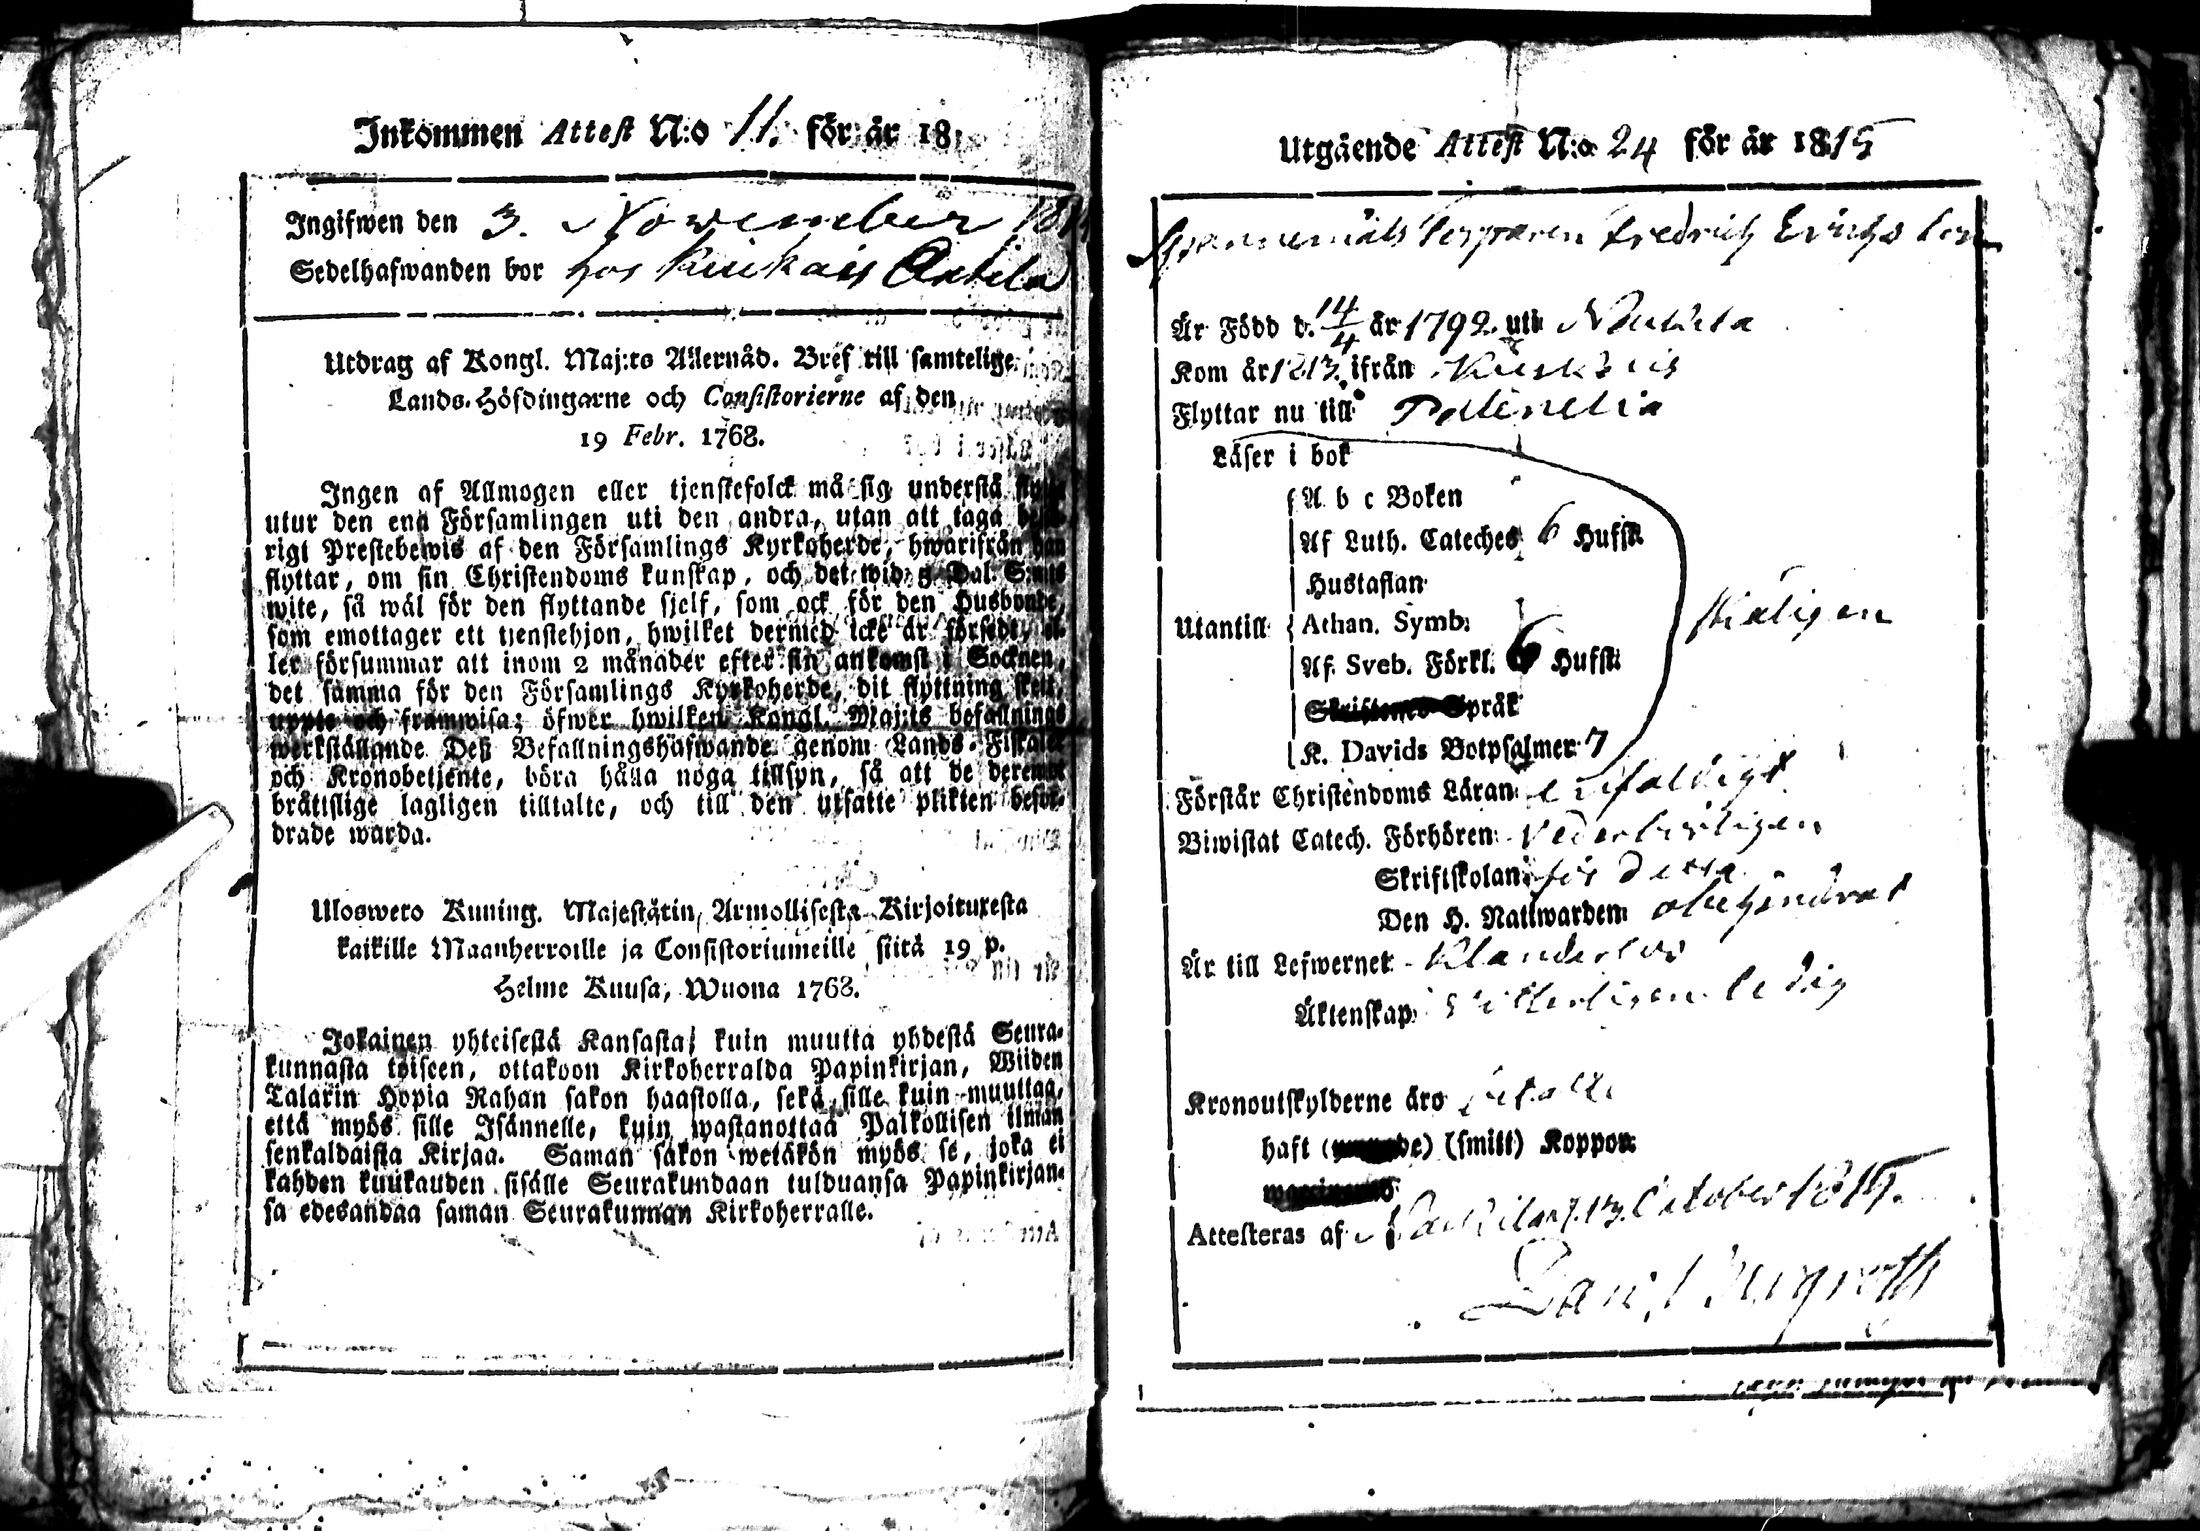 Inkommen Attest N:o 11. för år 18
Ingifwen den 3. November 18
Sedelhafwanden bor hos
Utdrag af Kongl. Maj:ts Allernåd. Bref till samtelige
Lands-Höfdingarne och Consistorierne af den
19 Febr. 1768.
Ingen af Allmogen eller tjenstefolck må sig understå
utur den ena Församlingen uti den andra, utan att taga
rigt Prestebewis af den Församlings Kyrkoherde, hwarifrån han
flyttar, om sin Christendoms kunskap, och det wid 5 Dal. S:mts
wite, så wäl för den flyttande sjelf, som ock för den Husbonde,
som emottager ett tjenstehjon, hwilket dermed icke är försedt, el-
ler försummar att inom 2 månader efter sin ankomst i Socknen,
det samma för den Församlings Kyrkoherde, dit flyttning sker,
uppte och framwisa; öfwer hwilken Kongl. Maj:ts befallnings
werkställande Deß Befallningshafwande genom Lands-Fiskaler
och Kronobetjente, böra hålla noga tillsyn, så att de deremot
bråttslige lagligen tilltalte, och till den utsatte plikten befor-
drade warda.
Uloswето Kuning. Majestätin, Armollisesta Kirjoituxesta
kaikille Maanherroille ja Consistoriumeille siitä 19 p.
Helme Kuusa, Wuona 1768.
Jokainen yhteisestä Kansasta, kuin muutta yhdestä Seura-
kunnasta toiseen, ottakoon Kirkoherralda Papinkirjan, Wiiden
Talarin Hopia Rahan sakon haastolla, sekä sille kuin muuttaa,
että myös sille Isännelle, kuin wastanottaa Palkollisen ilman
senkaldaista Kirjaa. Saman sakon wetäkön myös se, joka ei
kahden kuukauden sisälle Seurakundaan tulduansa Papinkirjan-
sa edesandaa saman Seurakunnan Kirkoherralle.
Utgående Attest N:o 24 för år 1815
Torpparen Fredrich Erichs Son
Är Född d. 14/4 år 1792. uti Nautela
Kom år 1813. ifrån
Flyttar nu till
Läser i bok
A b c Boken
Af Luth. Cateches 6 Hufst.
Hustaflan
Utantill Athan. Symb.
Af. Sveb. Förkl. 6 Hufst.
Språk
K. Davids Botpsalmer 7
Förstår Christendoms Läran enfaldigt
Biwistat Catech. Förhören wederbörligen
Skriftskolan för detta
Den H. Nattwarden obehindrat
Är till Lefwernet Klanderlös
Äktenskap ledig
Kronoutskylderne äro betalt
haft (smitt) Koppor
Attesteras af October 1815.